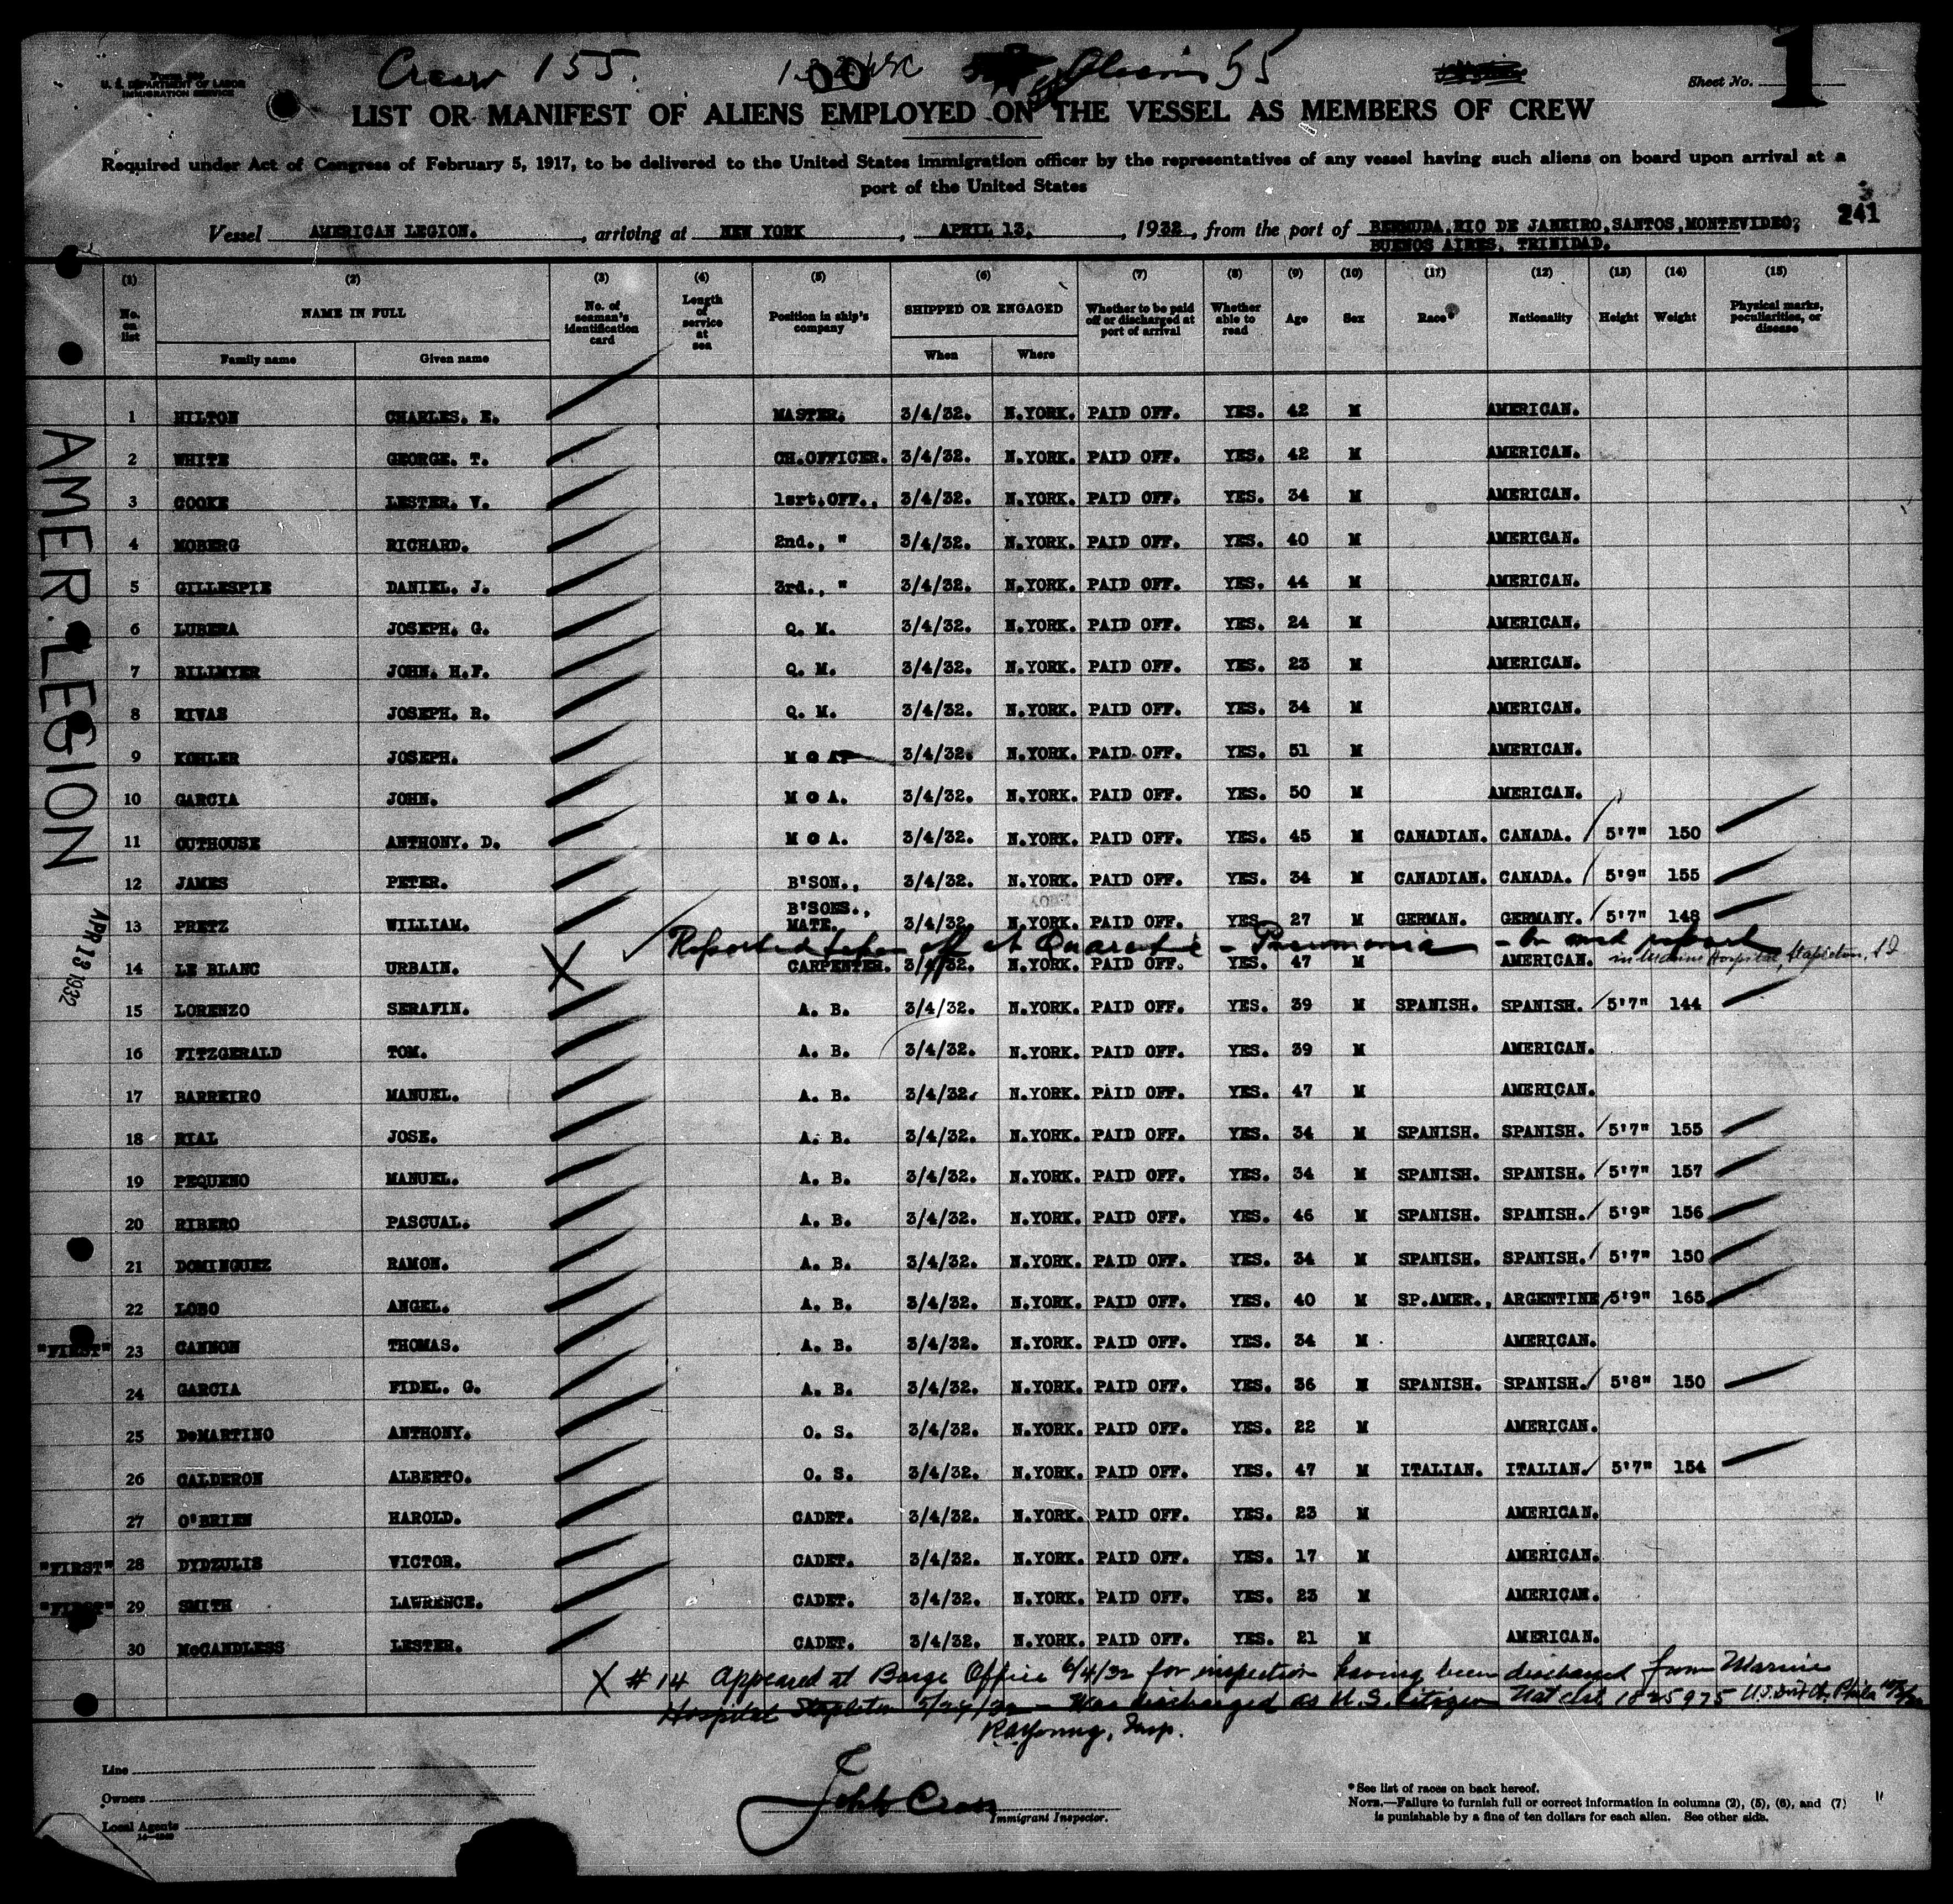 Crew 155. Aliens 55
U. S. DEPARTMENT OF LABOR
IMMIGRATION SERVICE
Sheet No. 1
LIST OR MANIFEST OF ALIENS EMPLOYED ON THE VESSEL AS MEMBERS OF CREW
Required under Act of Congress of February 5, 1917, to be delivered to the United States immigration officer by the representatives of any vessel having such aliens on board upon arrival at a
port of the United States
241
Vessel AMERICAN LEGION. , arriving at NEW YORK , APRIL 13, , 1932 , from the port of BERMUDA,RIO DE JANEIRO,SANTOS,MONTEVIDEO,
BUENOS AIRES, TRINIDAD.
(1) (2) (3) (4) (5) (6) (7) (8) (9) (10) (11) (12) (13) (14) (15)
No. on list NAME IN FULL No. of seaman's identification card Length of service at sea Position in ship's company SHIPPED OR ENGAGED Whether to be paid off or discharged at port of arrival Whether able to read Age Sex Race* Nationality Height Weight Physical marks, peculiarities, or disease
Family name Given name When Where
1 HILTON CHARLES. E. MASTER. 3/4/32. N.YORK. PAID OFF. YES. 42 M AMERICAN.
2 WHITE GEORGE. T. CH.OFFICER. 3/4/32. N.YORK. PAID OFF. YES. 42 M AMERICAN.
3 COOKE LESTER. V. 1srt.OFF., 3/4/32. N.YORK. PAID OFF. YES. 34 M AMERICAN.
4 MOBERG RICHARD. 2nd., " 3/4/32. N.YORK. PAID OFF. YES. 40 M AMERICAN.
5 GILLESPIE DANIEL. J. 3rd., " 3/4/32. N.YORK. PAID OFF. YES. 44 M AMERICAN.
6 LUBERA JOSEPH. G. Q. M. 3/4/32. N.YORK. PAID OFF. YES. 24 M AMERICAN.
7 BILLMYER JOHN. H.F. Q. M. 3/4/32. N.YORK. PAID OFF. YES. 23 M AMERICAN.
8 RIVAS JOSEPH. R. Q. M. 3/4/32. N.YORK. PAID OFF. YES. 34 M AMERICAN.
9 KOHLER JOSEPH. M O A 3/4/32. N.YORK. PAID OFF. YES. 51 M AMERICAN.
10 GARCIA JOHN. M O A. 3/4/32. N.YORK. PAID OFF. YES. 50 M AMERICAN.
11 OUTHOUSE ANTHONY. D. M O A. 3/4/32. N.YORK. PAID OFF. YES. 45 M CANADIAN. CANADA. 5'7" 150
12 JAMES PETER. B'SON., 3/4/32. N.YORK. PAID OFF. YES. 34 M CANADIAN. CANADA. 5'9" 155
13 PRETZ WILLIAM. B'SONS., MATE. 3/4/32. N.YORK. PAID OFF. YES. 27 M GERMAN. GERMANY. 5'7" 148
Reported taken off at Quarantine - Pneumonia - in Marine Hospital, Stapleton, S I
14 LE BLANC URBAIN. CARPENTER. 3/4/32. N.YORK. PAID OFF. YES. 47 M AMERICAN.
15 LORENZO SERAFIN. A. B. 3/4/32. N.YORK. PAID OFF. YES. 39 M SPANISH. SPANISH. 5'7" 144
16 FITZGERALD TOM. A. B. 3/4/32. N.YORK. PAID OFF. YES. 39 M AMERICAN.
17 BARREIRO MANUEL. A. B. 3/4/32. N.YORK. PAID OFF. YES. 47 M AMERICAN.
18 RIAL JOSE. A. B. 3/4/32. N.YORK. PAID OFF. YES. 34 M SPANISH. SPANISH. 5'7" 155
19 PEQUENO MANUEL. A. B. 3/4/32. N.YORK. PAID OFF. YES. 34 M SPANISH. SPANISH. 5'7" 157
20 RIBERO PASCUAL. A. B. 3/4/32. N.YORK. PAID OFF. YES. 46 M SPANISH. SPANISH. 5'9" 156
21 DOMINGUEZ RAMON. A. B. 3/4/32. N.YORK. PAID OFF. YES. 34 M SPANISH. SPANISH. 5'7" 150
22 LOBO ANGEL. A. B. 3/4/32. N.YORK. PAID OFF. YES. 40 M SP.AMER., ARGENTINE 5'9" 165
"FIRST" 23 CANNON THOMAS. A. B. 3/4/32. N.YORK. PAID OFF. YES. 34 M AMERICAN.
24 GARCIA FIDEL. G. A. B. 3/4/32. N.YORK. PAID OFF. YES. 36 M SPANISH. SPANISH. 5'8" 150
25 DeMARTINO ANTHONY. O. S. 3/4/32. N.YORK. PAID OFF. YES. 22 M AMERICAN.
26 CALDERON ALBERTO. O. S. 3/4/32. N.YORK. PAID OFF. YES. 47 M ITALIAN. ITALIAN. 5'7" 154
27 O'BRIEN HAROLD. CADET. 3/4/32. N.YORK. PAID OFF. YES. 23 M AMERICAN.
"FIRST" 28 DYDZULIS VICTOR. CADET. 3/4/32. N.YORK. PAID OFF. YES. 17 M AMERICAN.
"FIRST" 29 SMITH LAWRENCE. CADET. 3/4/32. N.YORK. PAID OFF. YES. 23 M AMERICAN.
30 McCANDLESS LESTER. CADET. 3/4/32. N.YORK. PAID OFF. YES. 21 M AMERICAN.
X #14 Appeared at Barge Office 6/4/32 for inspection having been discharged from Marine
Hospital Stapleton 5/24/32 - Was discharged as U.S. Citizen Nat cht 1825975 U.S. Dist Ct. Phila
RA Young, Insp.
AMER. LEGION
APR 13 1932
Line
Owners
Local Agents
John Cross
Immigrant Inspector.
*See list of races on back hereof.
NOTE.—Failure to furnish full or correct information in columns (2), (5), (6), and (7)
is punishable by a fine of ten dollars for each alien. See other side.